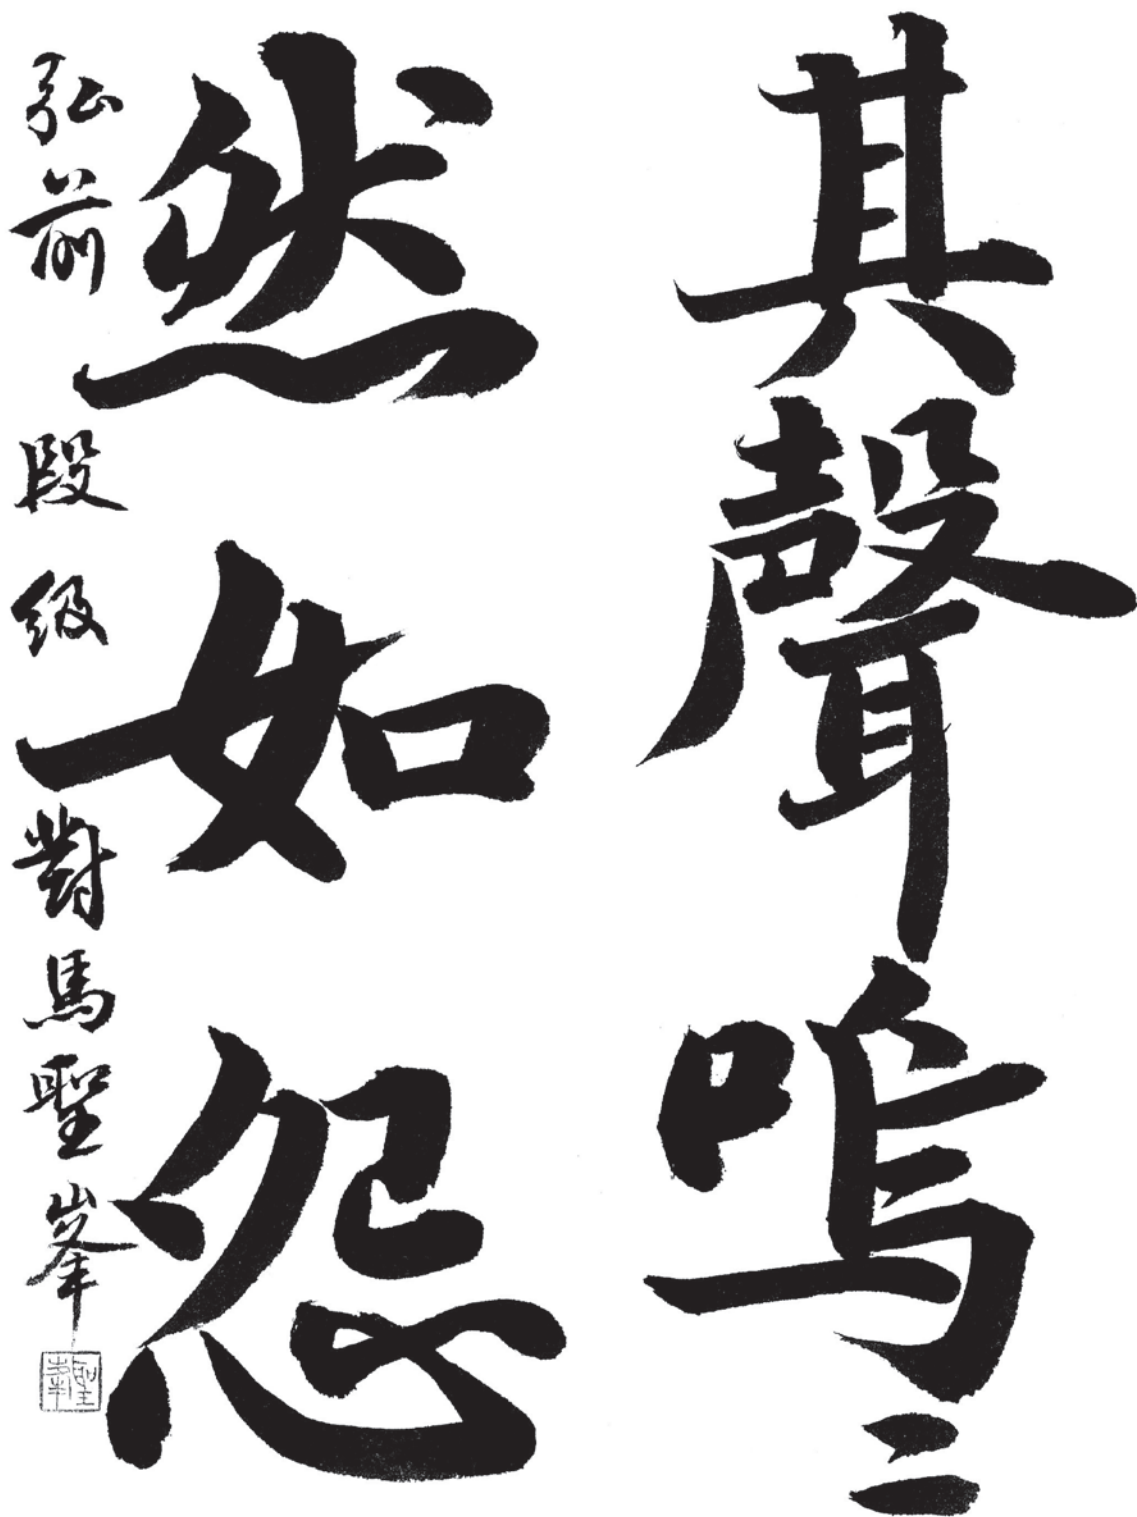 其聲嗚二
然如怨
弘前 段 級 對馬聖峯
聖峯